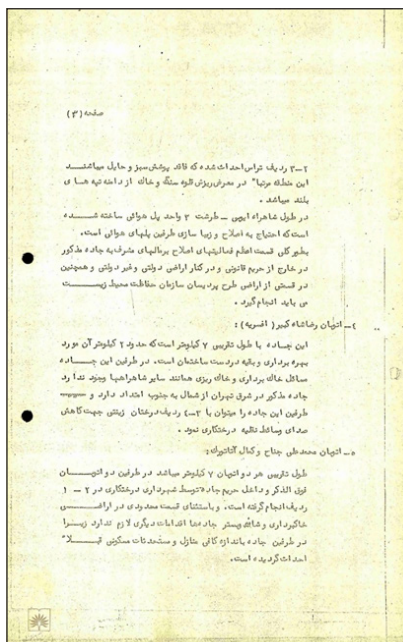 صفحه (۳)
۲-۳ ردیف تراس احداث شده که فاقد پوشش سبز و حایل میباشند
این منطقه مرتبا" در معرض ریزش قلوه سنگ و خاک از دامنه تپه های
بلند میباشد .
در طول شاهراه ایوبی - طرشت ۳ واحد پل هوائی ساخته شده
است که احتیاج به اصلاح و زیبا سازی طرفین پلهای هوائی است.
بطور کلی قسمت اعظم فعالیتهای اصلاح برمالهای مشرف به جاده مذکور
در خارج از حریم قانونی و در کنار اراضی دولتی و غیر دولتی و همچنین
در قسمتی از اراضی طرح پردیسان سازمان حفاظت محیط زیست
می باید انجام گیرد .
۴- اتوبان رضاشاه کبیر ( افسریه ) :
این جاده با طول تقریبی ۷ کیلومتر است که حدود ۲ کیلومتر آن مورد
بهره برداری و بقیه در دست ساختمان است. در طرفین این جاده
مسائل خاک برداری و خاک ریزی همانند سایر شاهراهها وجود ندارد
جاده مذکور در شرق تهران از شمال به جنوب امتداد دارد و
طرفین این جاده را میتوان با ۲-۳ ردیف درختان زینتی جهت کاهش
صدای وسائط نقلیه درختکاری نمود .
۵- اتوبان محمدعلی جناح و کمال آتاتورک :
طول تقریبی هر دو اتوبان ۷ کیلومتر میباشد در طرفین دو اتوبان
فوق الذکر و داخل حریم جاده توسط شهرداری درختکاری در ۲ - ۱
ردیف انجام گرفته است. و باستثنای قسمت محدودی در اراضی
خاکبرداری و شانه وبستر جاده‌ها اقدامات دیگری لازم ندارد زیرا
در طرفین جاده باندازه کافی منازل و مستحدثات مسکونی قبلا"
احداث گردیده است.